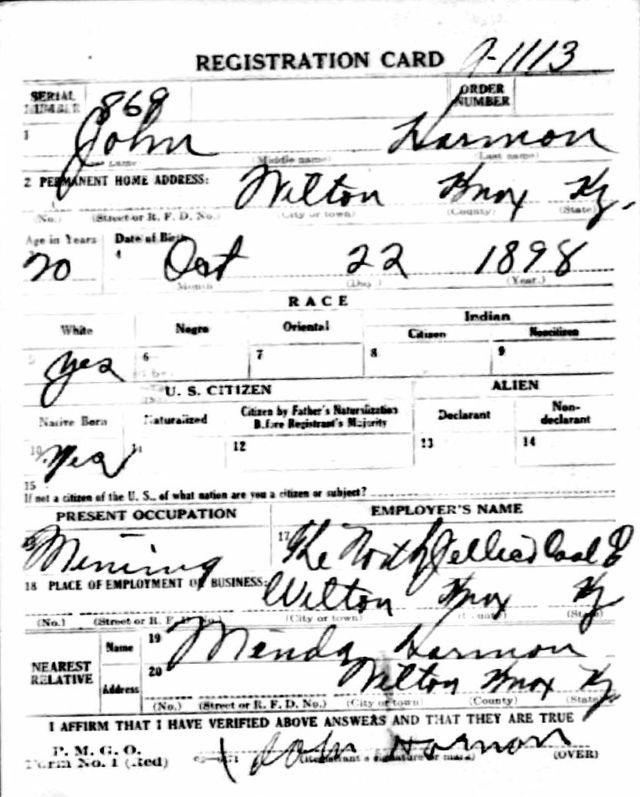 REGISTRATION CARD
SERIAL NUMBER 869 ORDER NUMBER 1113
1 John Harmon
(Middle name) (Last name)
2 PERMANENT HOME ADDRESS: Wilton Knox Ky.
(No.) (Street or R. F. D. No.) (City or town) (County) (State)
Age in Years Date of Birth
20 4 Oct 22 1898
Month (Day) (Year.)
RACE
White Negro Oriental Indian
Citizen Noncitizen
Yes 6 7 8 9
U. S. CITIZEN ALIEN
Native Born Naturalized Citizen by Father's Naturalization Before Registrant's Majority Declarant Non-declarant
10 Yes 11 12 13 14
15
If not a citizen of the U. S., of what nation are you a citizen or subject?
PRESENT OCCUPATION EMPLOYER'S NAME
Mining 17 The North Jellico Coal
18 PLACE OF EMPLOYMENT OR BUSINESS: Wilton Knox Ky
(No.) (Street or R. F. D. No.) (City or town) (County) (State)
NEAREST RELATIVE Name 19 Minda Harmon
Address 20 Wilton Knox Ky
(No.) (Street or R. F. D. No.) (City or town) (County) (State)
I AFFIRM THAT I HAVE VERIFIED ABOVE ANSWERS AND THAT THEY ARE TRUE
P. M. G. O.
Form No. 1 (Red) John Harmon
(Registrant's signature or mark) (OVER)